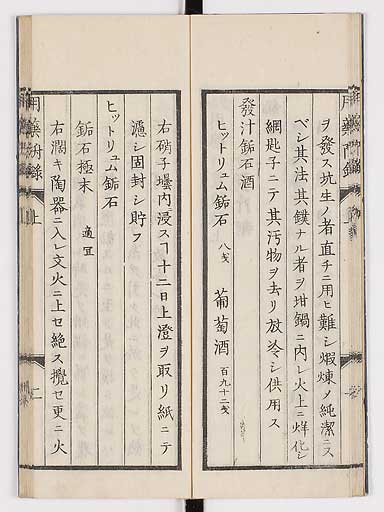 ヲ發ス坑生ノ者直チニ用ヒ難シ煅煉ノ純潔ニス
ベシ其法其鏷ナル者ヲ坩鍋ニ内レ火上ニ烊化シ
網匙子ニテ其汚物ヲ去リ放冷シ供用ス
發汁鉐石酒
ヒットリュム鉐石 八戔 葡萄酒 百九十二戔
右硝子壜内浸スヿ十二日上澄ヲ取リ紙ニテ
濾シ固封シ貯フ
ヒットリュム鉐石
鉐石極末 適宜
右濶キ陶器ニ入レ文火ニ上セ絶ス攪セ更ニ火
用藥附錄 上